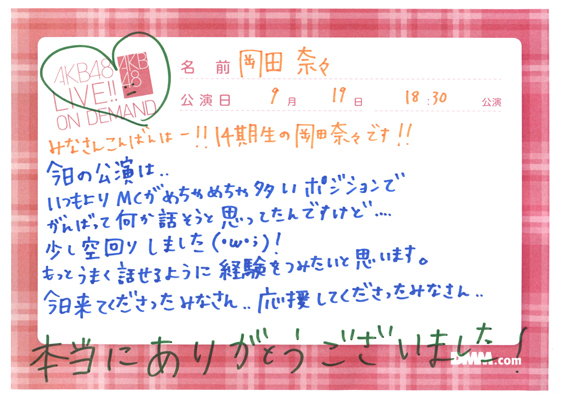 AKB48
LIVE!!
ON DEMAND
AKB
48
名前 岡田 奈々
公演日 9月 19日 18:30 公演
みなさんこんばんはー!!14期生の岡田奈々です!!
今日の公演は..
いつもよりMCがめちゃめちゃ多いポジションで
がんばって何か話そうと思ってたんですけど....
少し空回りしました(・ω・;)!
もっとうまく話せるように経験をつみたいと思います。
今日来てくださったみなさん..応援してくださったみなさん..
本当にありがとうございました!
DMM.com